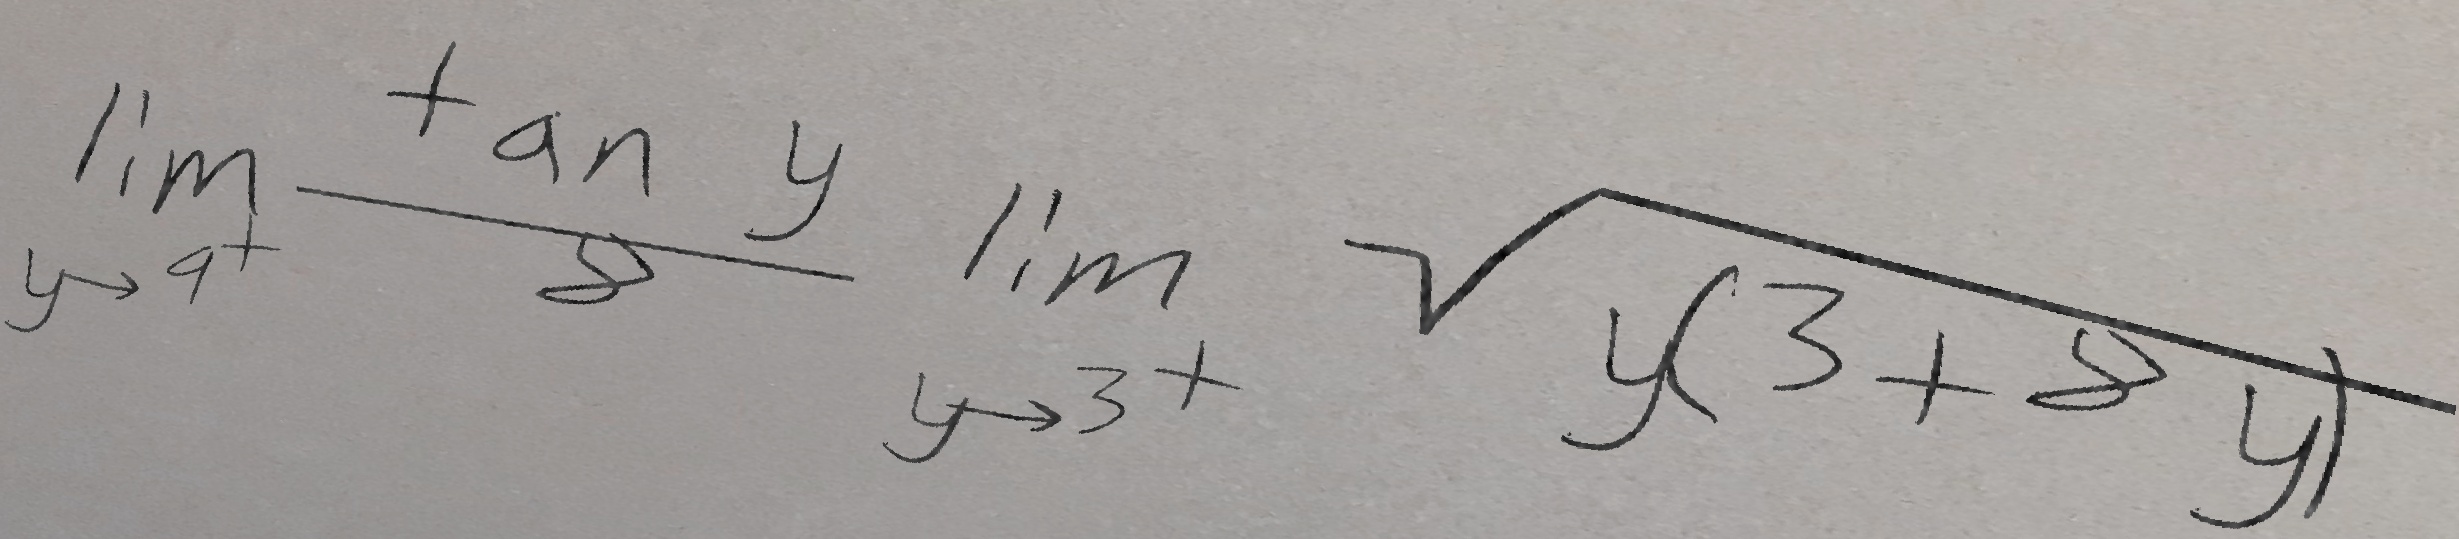 \lim_{y \to 9^+} \frac{\tan y}{8} \lim_{y \to 3^+} \sqrt{y(3+8y)}